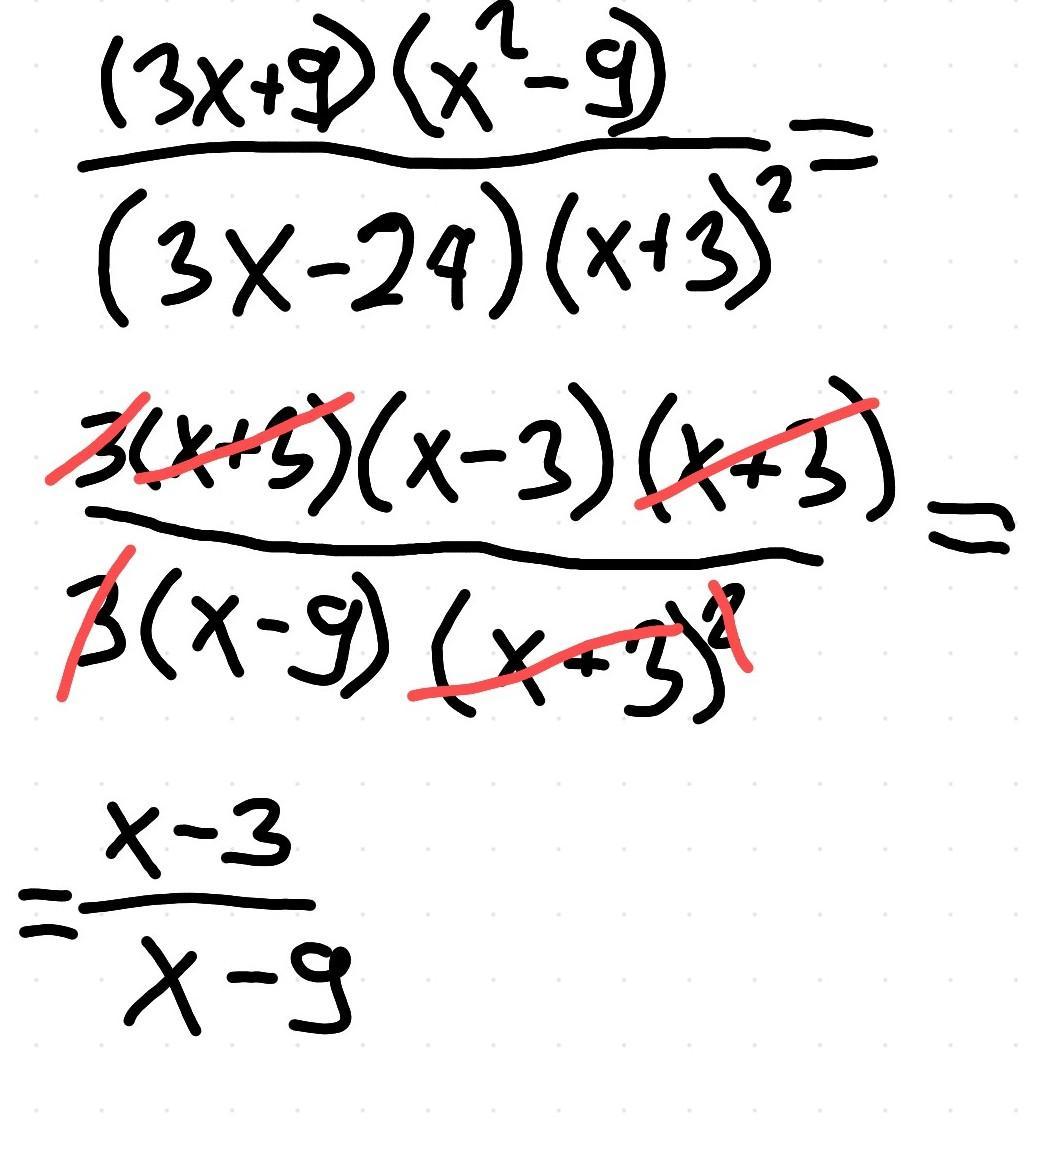 (3x+9)(x²-9)
(3x-24)(x+3)² =
3(x+3)(x-3)(x+3)
3(x-9)(x+3)² =
= x-3
x-9